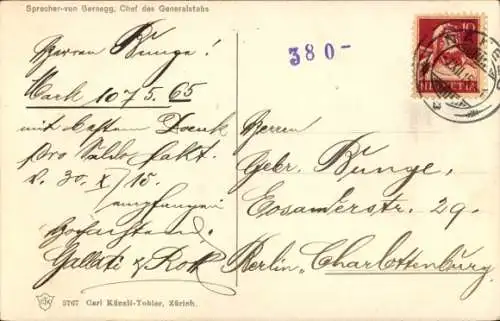 Sprecher-von Bernegg, Chef des Generalstabs
380-
10
HELVETIA
Herren Bunge!
Mark 1075.65
mit bestem Dank
pro Saldo fakt.
v. 30. X/15.
empfangen
Hochachtend,
Gallati & Rok
Herren
Gebr. Bunge,
Eosanderstr. 29.
Berlin-Charlottenburg.
3767 Carl Künzli-Tobler, Zürich.